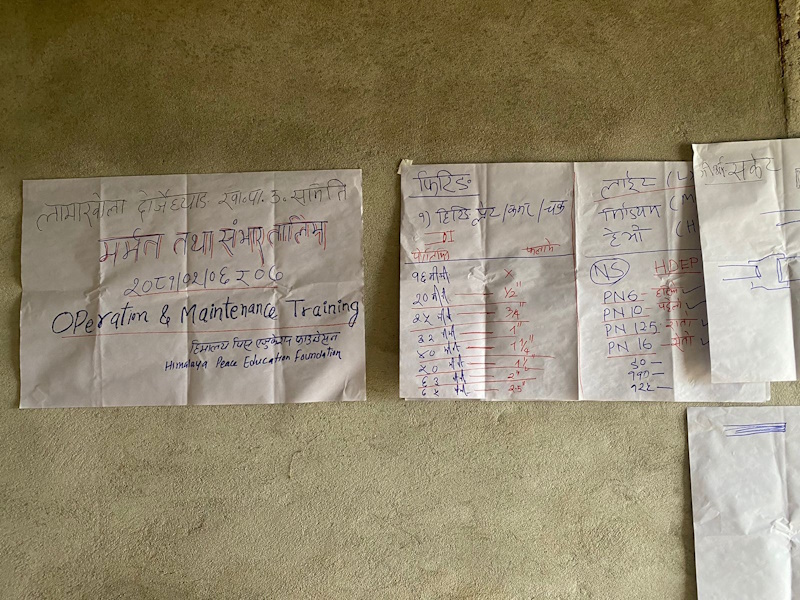 लामाखोला दोर्जेघ्याङ खा.पा.उ. समिति
मर्मत तथा संभार तालिम
२०८१/०२/०६ र ०७
Operation & Maintenance Training
हिमालय पिस एडुकेशन फाउन्डेसन
Himalaya Peace Education Foundation
फिटिङ
१) हिटिङ प्लेट /
DI
१६ मीमी X
२० मीमी 1/2"
२५ मीमी 3/4"
३२ मीमी 1"
४० मीमी 1 1/4"
५० मीमी 1 1/2"
६३ मीमी 2"
मीमी 2.5"
लाईट (L
मिडियम (M
हेभी (H
NS HDEP
PN6
PN 10 पहेंलो
PN 12.5 रातो
PN 16
९०
११०
१२५
सकेट